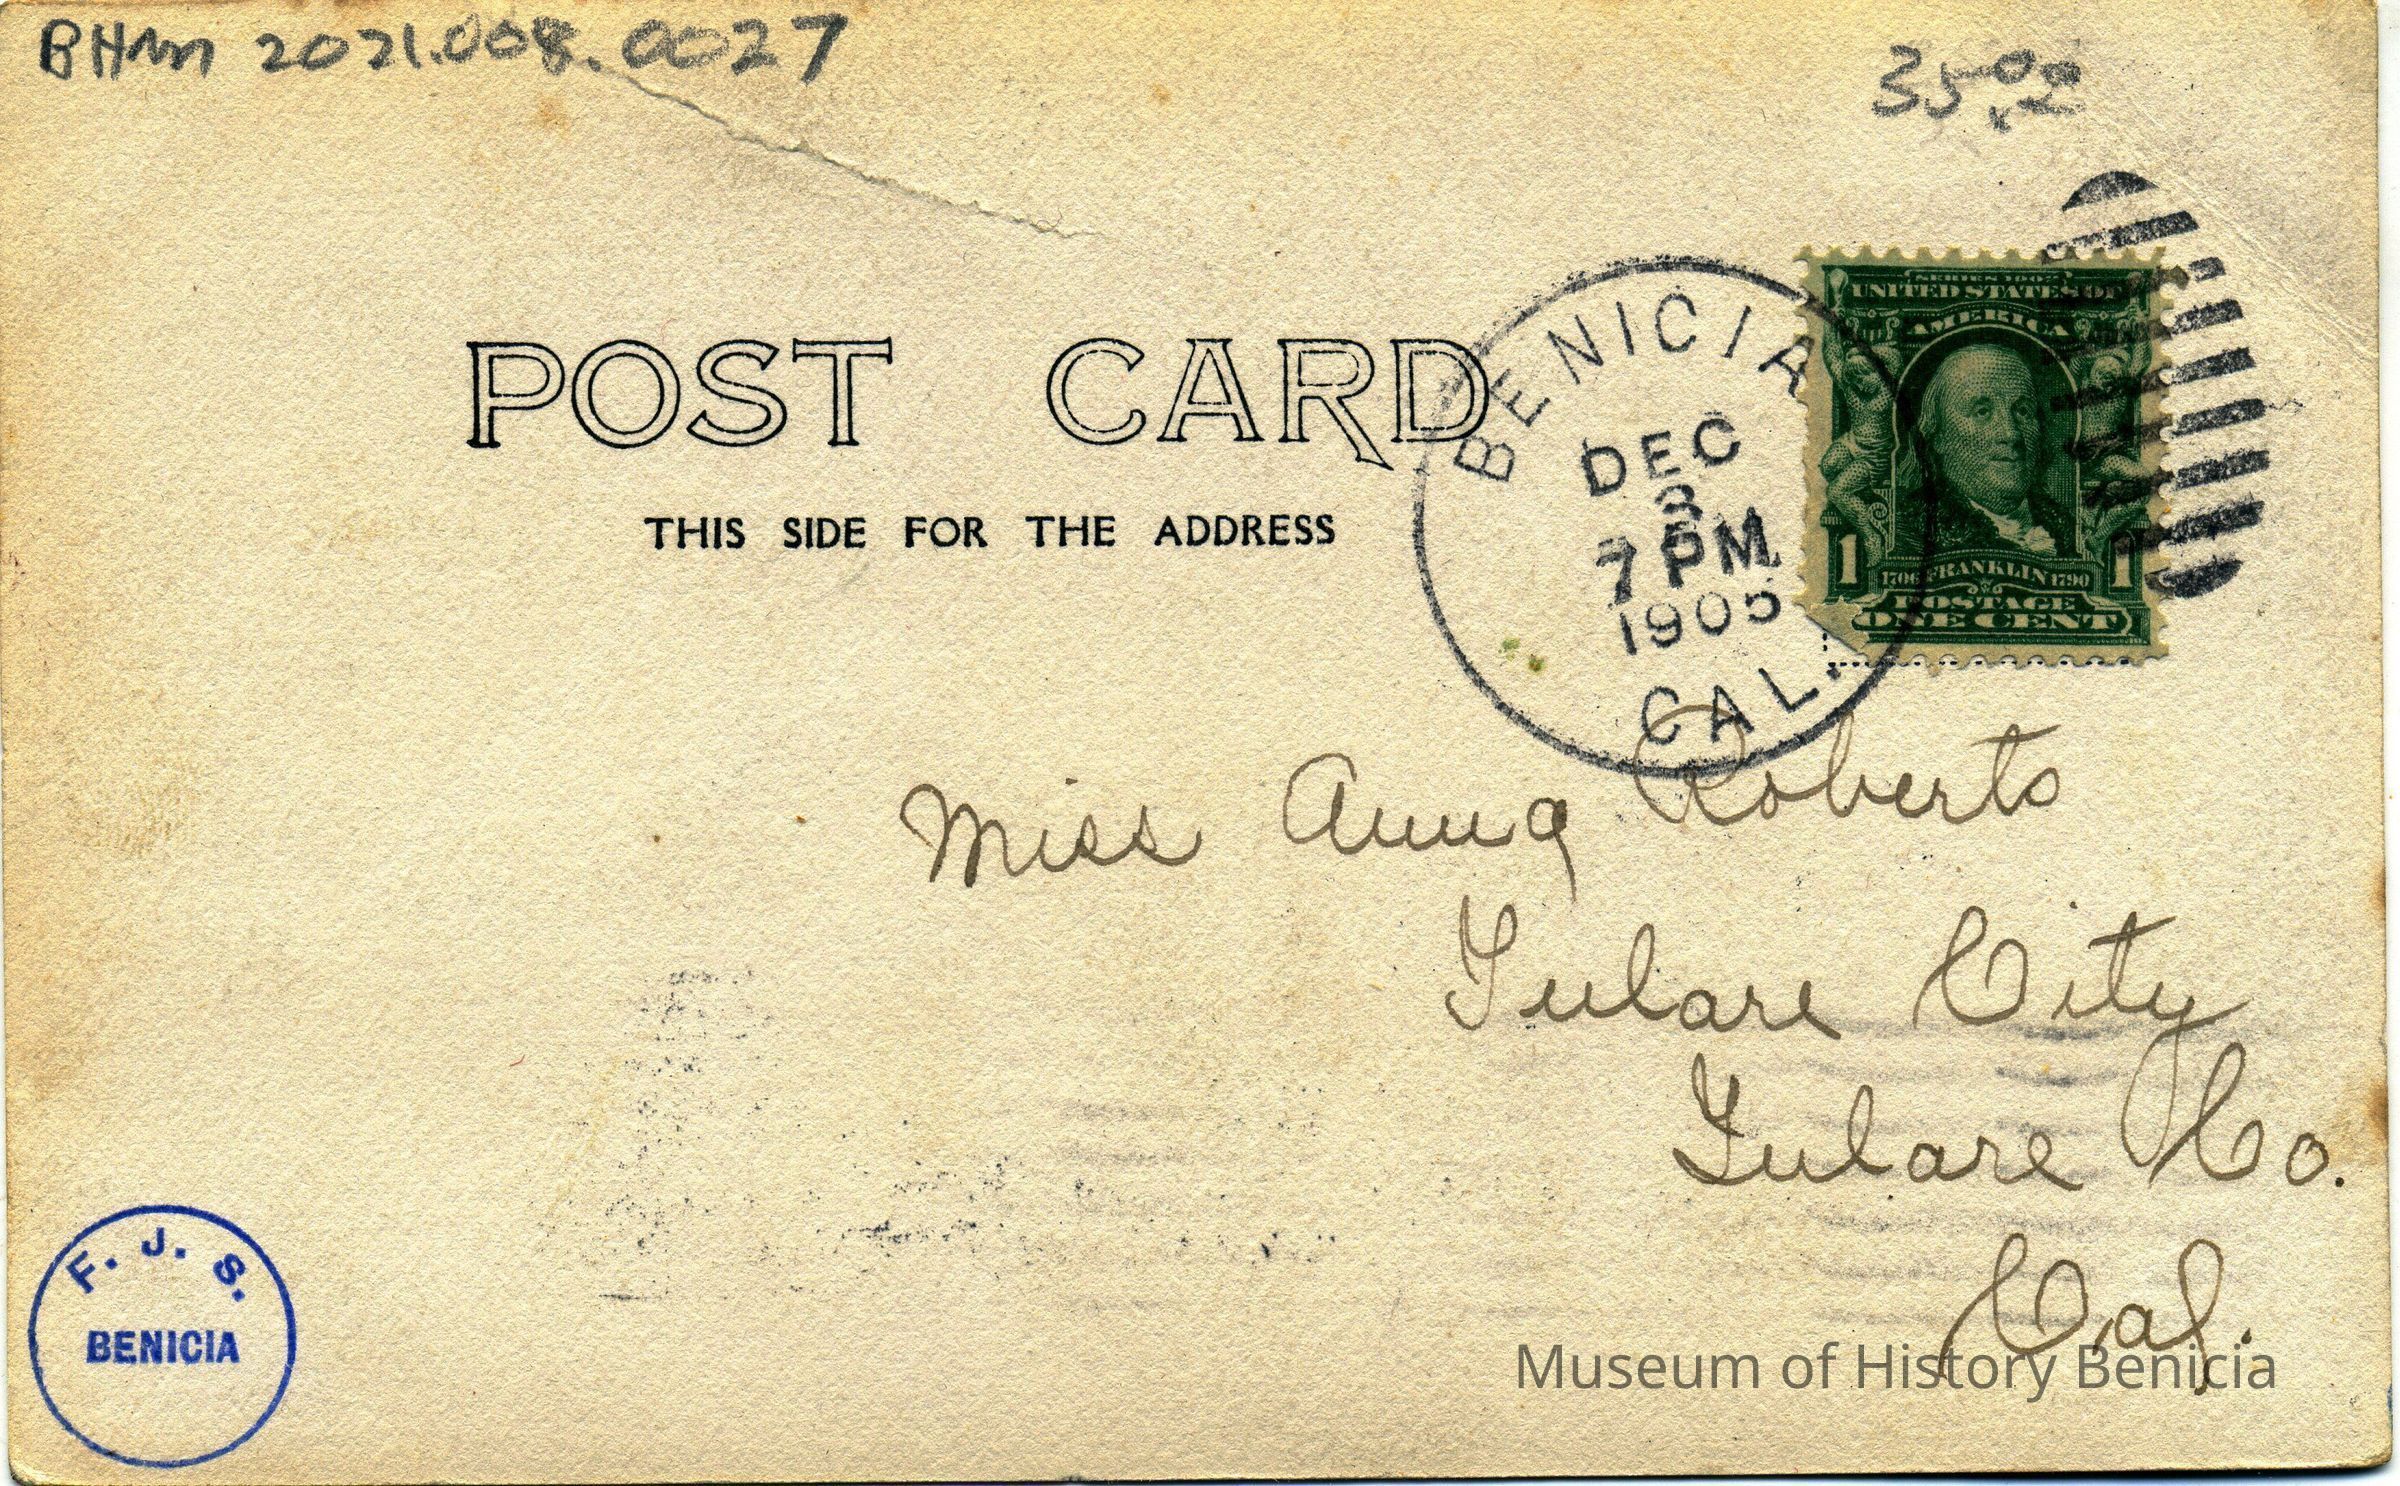 BHM 2021.008.0027
35.00
POST CARD
THIS SIDE FOR THE ADDRESS
BENICIA
DEC
3
7 PM
1905
CAL.
SERIES 1902
UNITED STATES OF
AMERICA
1 1706 FRANKLIN 1790 1
POSTAGE
ONE CENT
Miss Anna Roberts
Tulare City
Tulare Co.
Cal.
F. J. S.
BENICIA
Museum of History Benicia